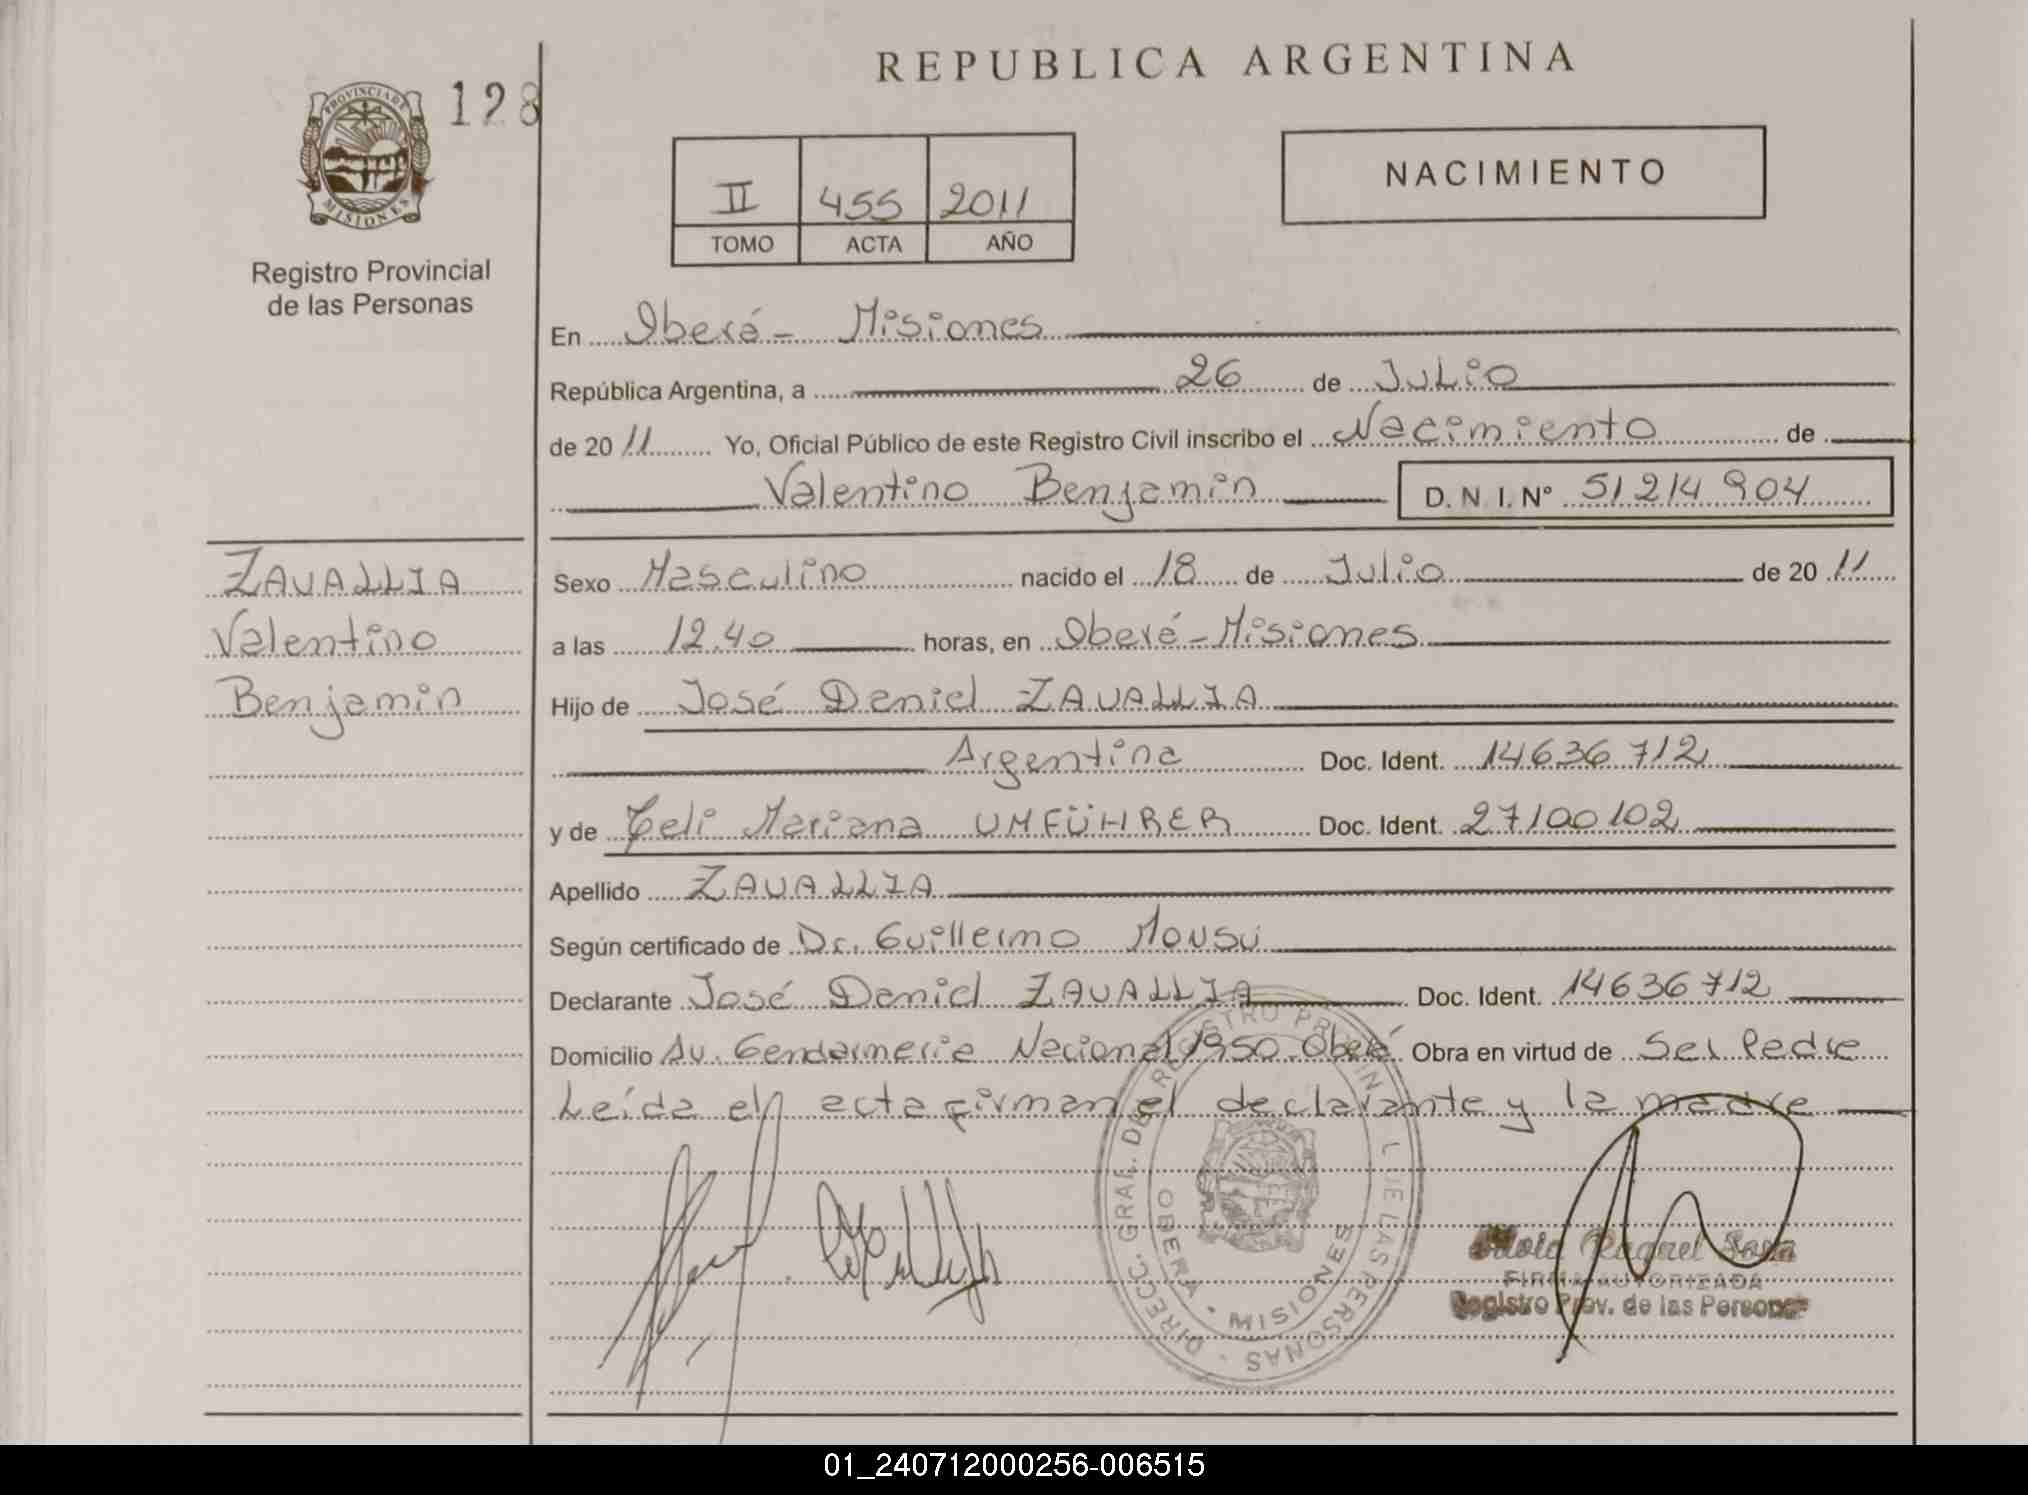 REPUBLICA ARGENTINA
PROVINCIA DE
MISIONES
128
Registro Provincial
de las Personas
II 455 2011
TOMO ACTA AÑO
NACIMIENTO
En Oberá - Misiones
República Argentina, a 26 de Julio
de 2011 Yo, Oficial Público de este Registro Civil inscribo el Nacimiento de
Valentino Benjamin D. N. I. Nº 51214904
ZAVALLIA
Valentino
Benjamin
Sexo Masculino nacido el 18 de Julio de 2011
a las 12.40 horas, en Oberá - Misiones
Hijo de José Daniel ZAVALLIA
Argentina Doc. Ident. 14636712
y de Mariana UMFÜHRER Doc. Ident. 27100102
Apellido ZAVALLIA
Según certificado de Dr. Guillermo Mousu
Declarante José Daniel ZAVALLIA Doc. Ident. 14636712
Domicilio Av. Gendarmeria Nacional 1950 - Oberá Obra en virtud de Ser Padre
Leída el acta firman el declarante y la madre
DIRECC. GRAL. DEL REGISTRO PROVINCIAL DE LAS PERSONAS
OBERA - MISIONES
Raquel Sosa
FIRMA AUTORIZADA
Registro Prov. de las Personas
01_240712000256-006515